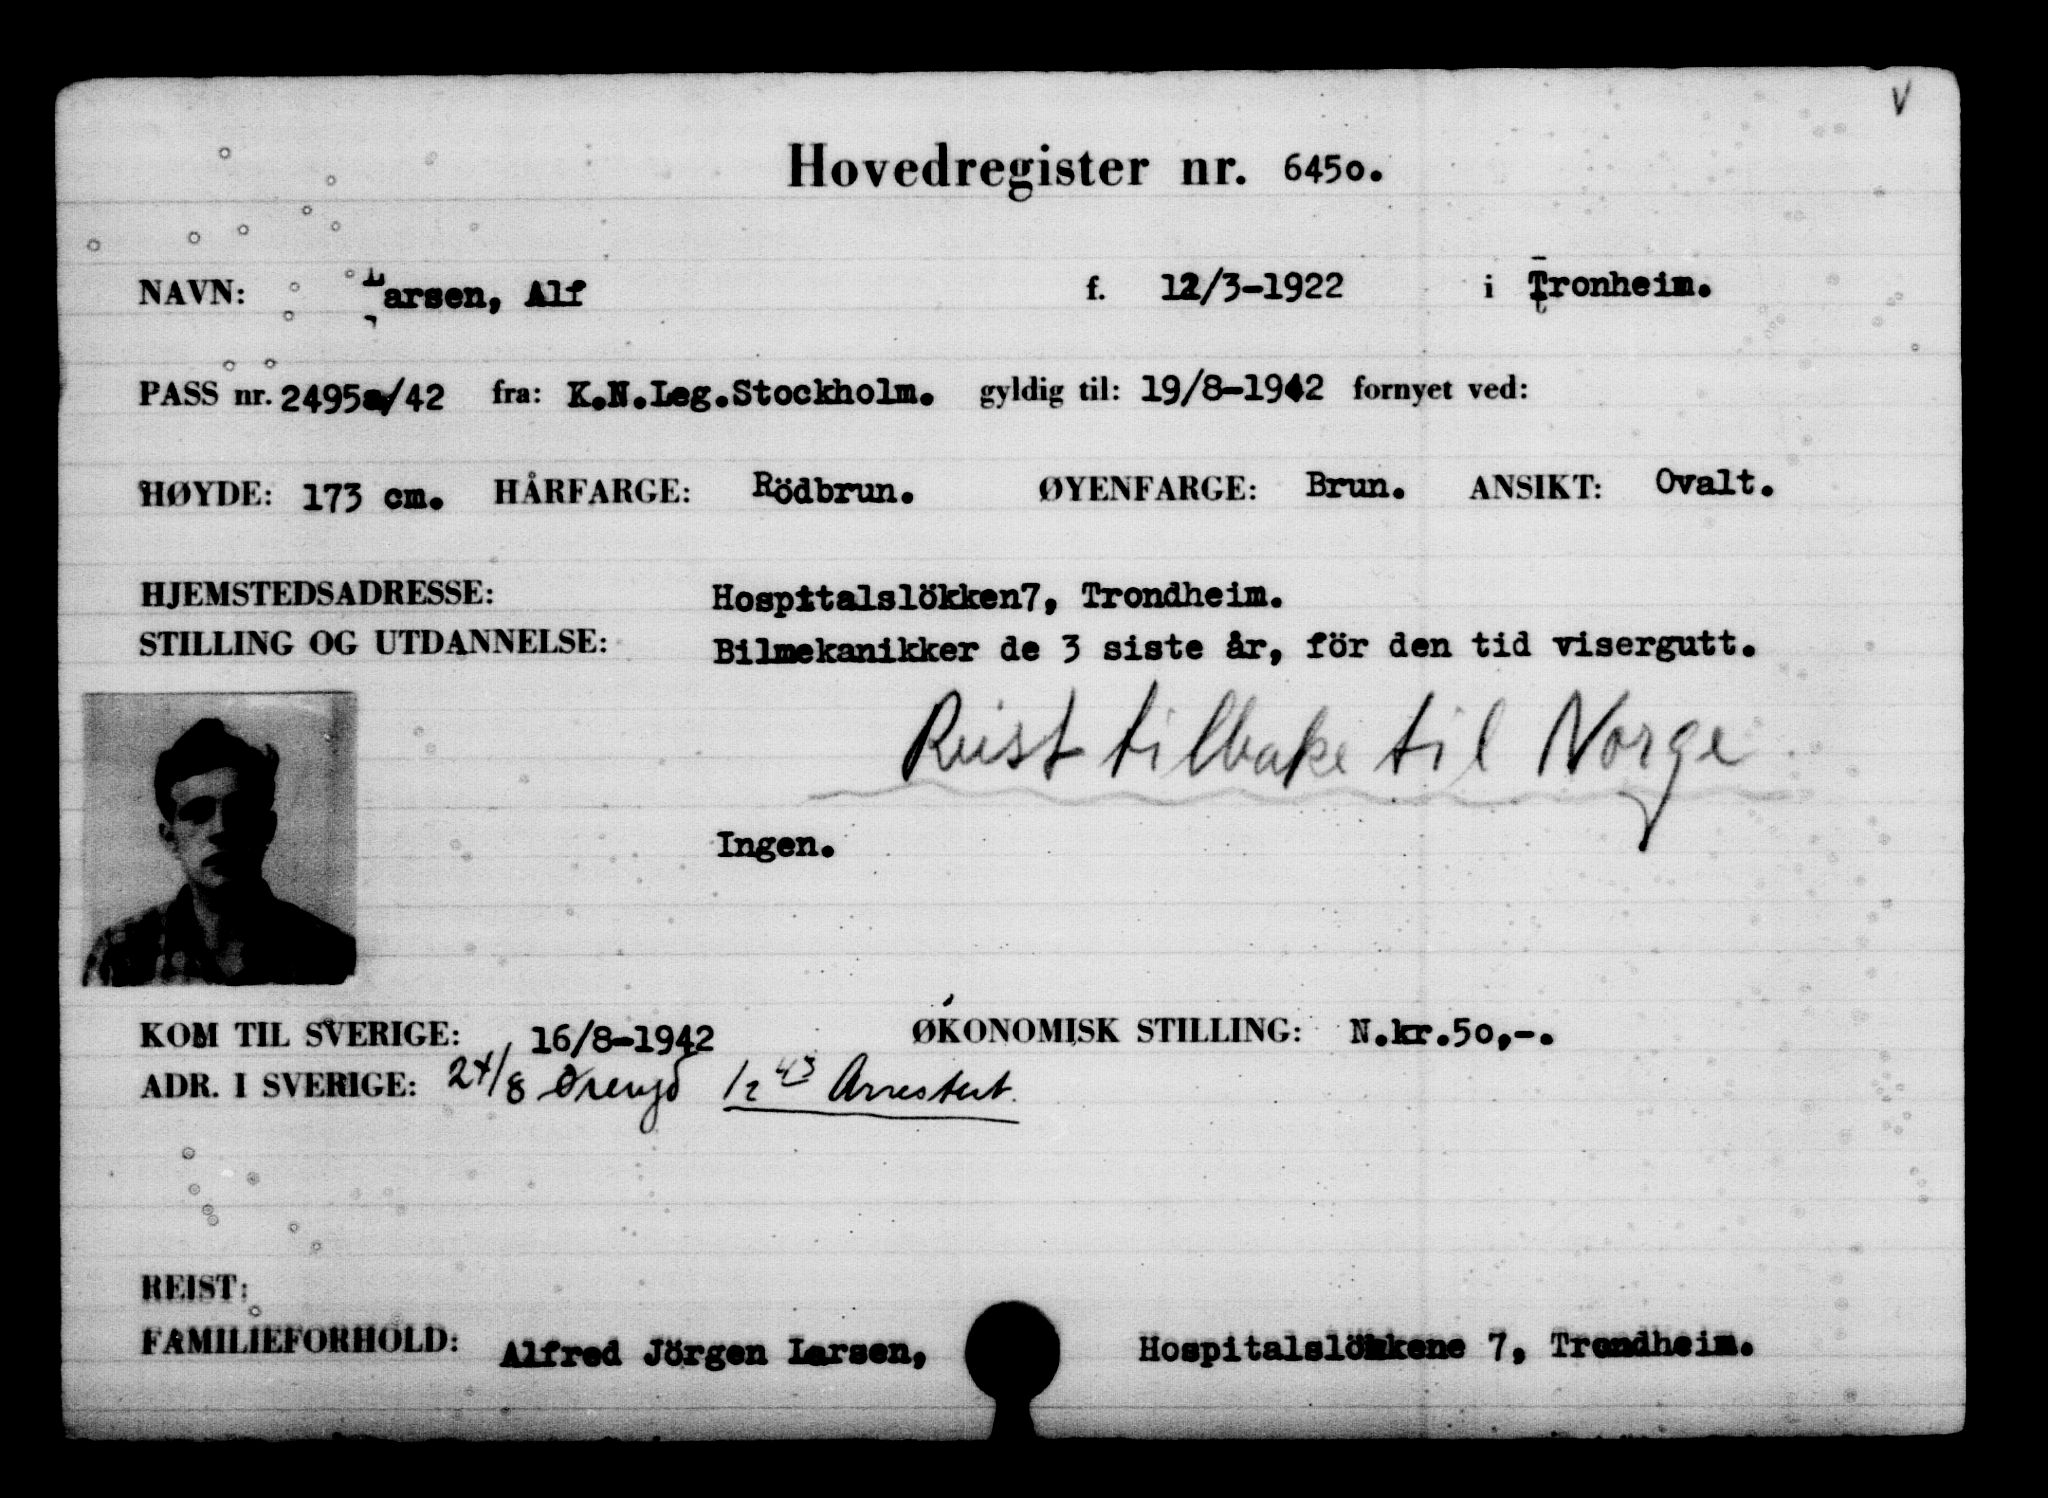 V
Hovedregister nr. 6450.
NAVN: Larsen, Alf f. 12/3-1922 i Tronheim.
PASS nr. 2495a/42 fra: K.N.Leg.Stockholm. gyldig til: 19/8-1942 fornyet ved:
HØYDE: 173 cm. HÅRFARGE: Rödbrun. ØYENFARGE: Brun. ANSIKT: Ovalt.
HJEMSTEDSADRESSE: Hospitalslökken7, Trondheim.
STILLING OG UTDANNELSE: Bilmekanikker de 3 siste år, för den tid visergutt.
Reist tilbake til Norge
Ingen.
KOM TIL SVERIGE: 16/8-1942 ØKONOMISK STILLING: N.kr.50,-.
ADR. I SVERIGE: 24/8 Öreryd 1/2 43 Arrestert.
REIST:
FAMILIEFORHOLD: Alfred Jörgen Larsen, Hospitalslökkene 7, Trondheim.